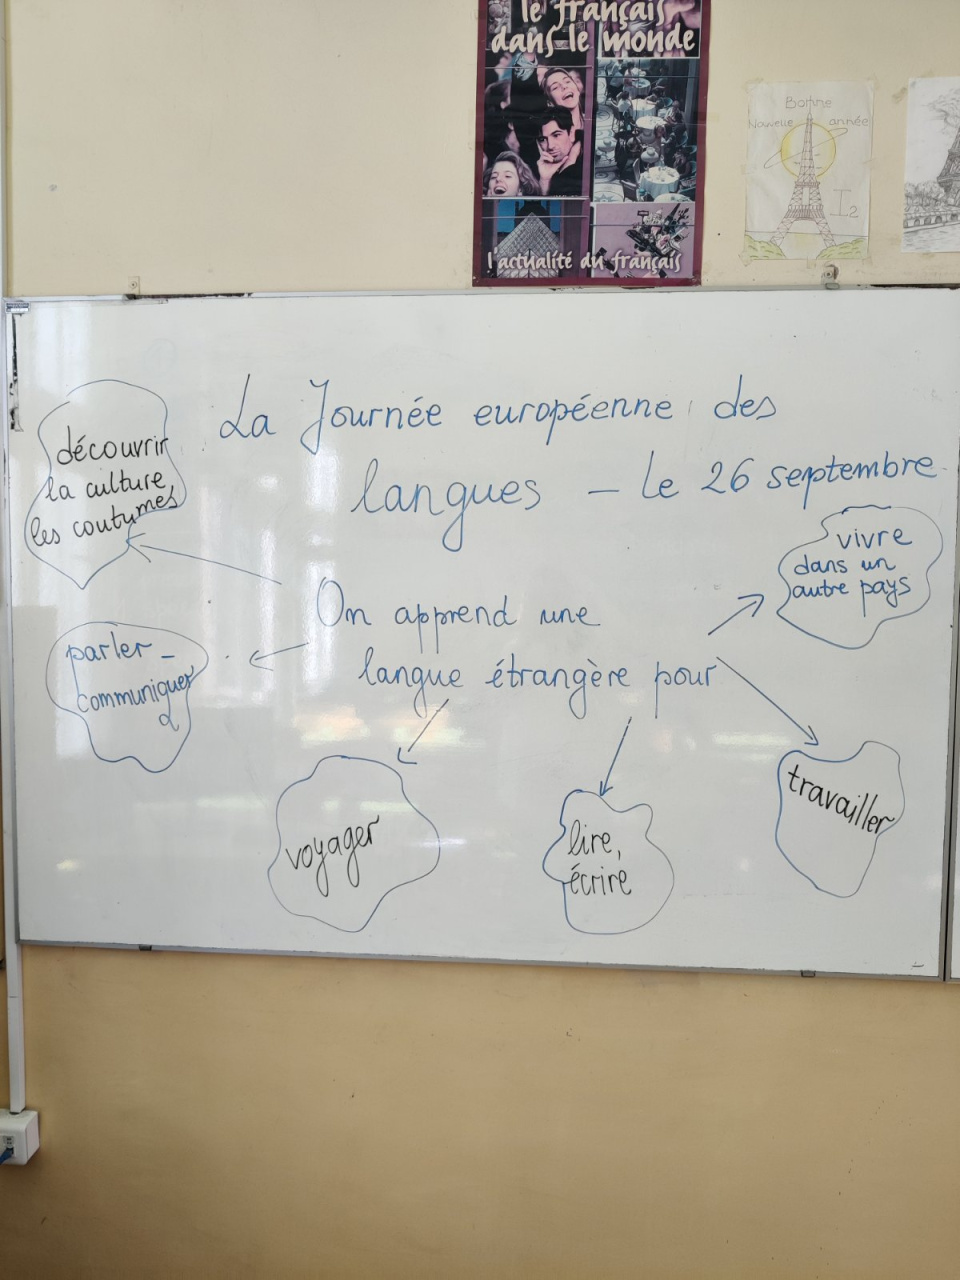 le français
dans le monde
l'actualité du français
Bonne
Nouvelle année
I2
La Journée européenne des
langues - le 26 septembre
découvrir
la culture
les coutumes
vivre
dans un
autre pays
On apprend une
langue étrangère pour
parler -
communiquer
voyager
lire,
écrire
travailler